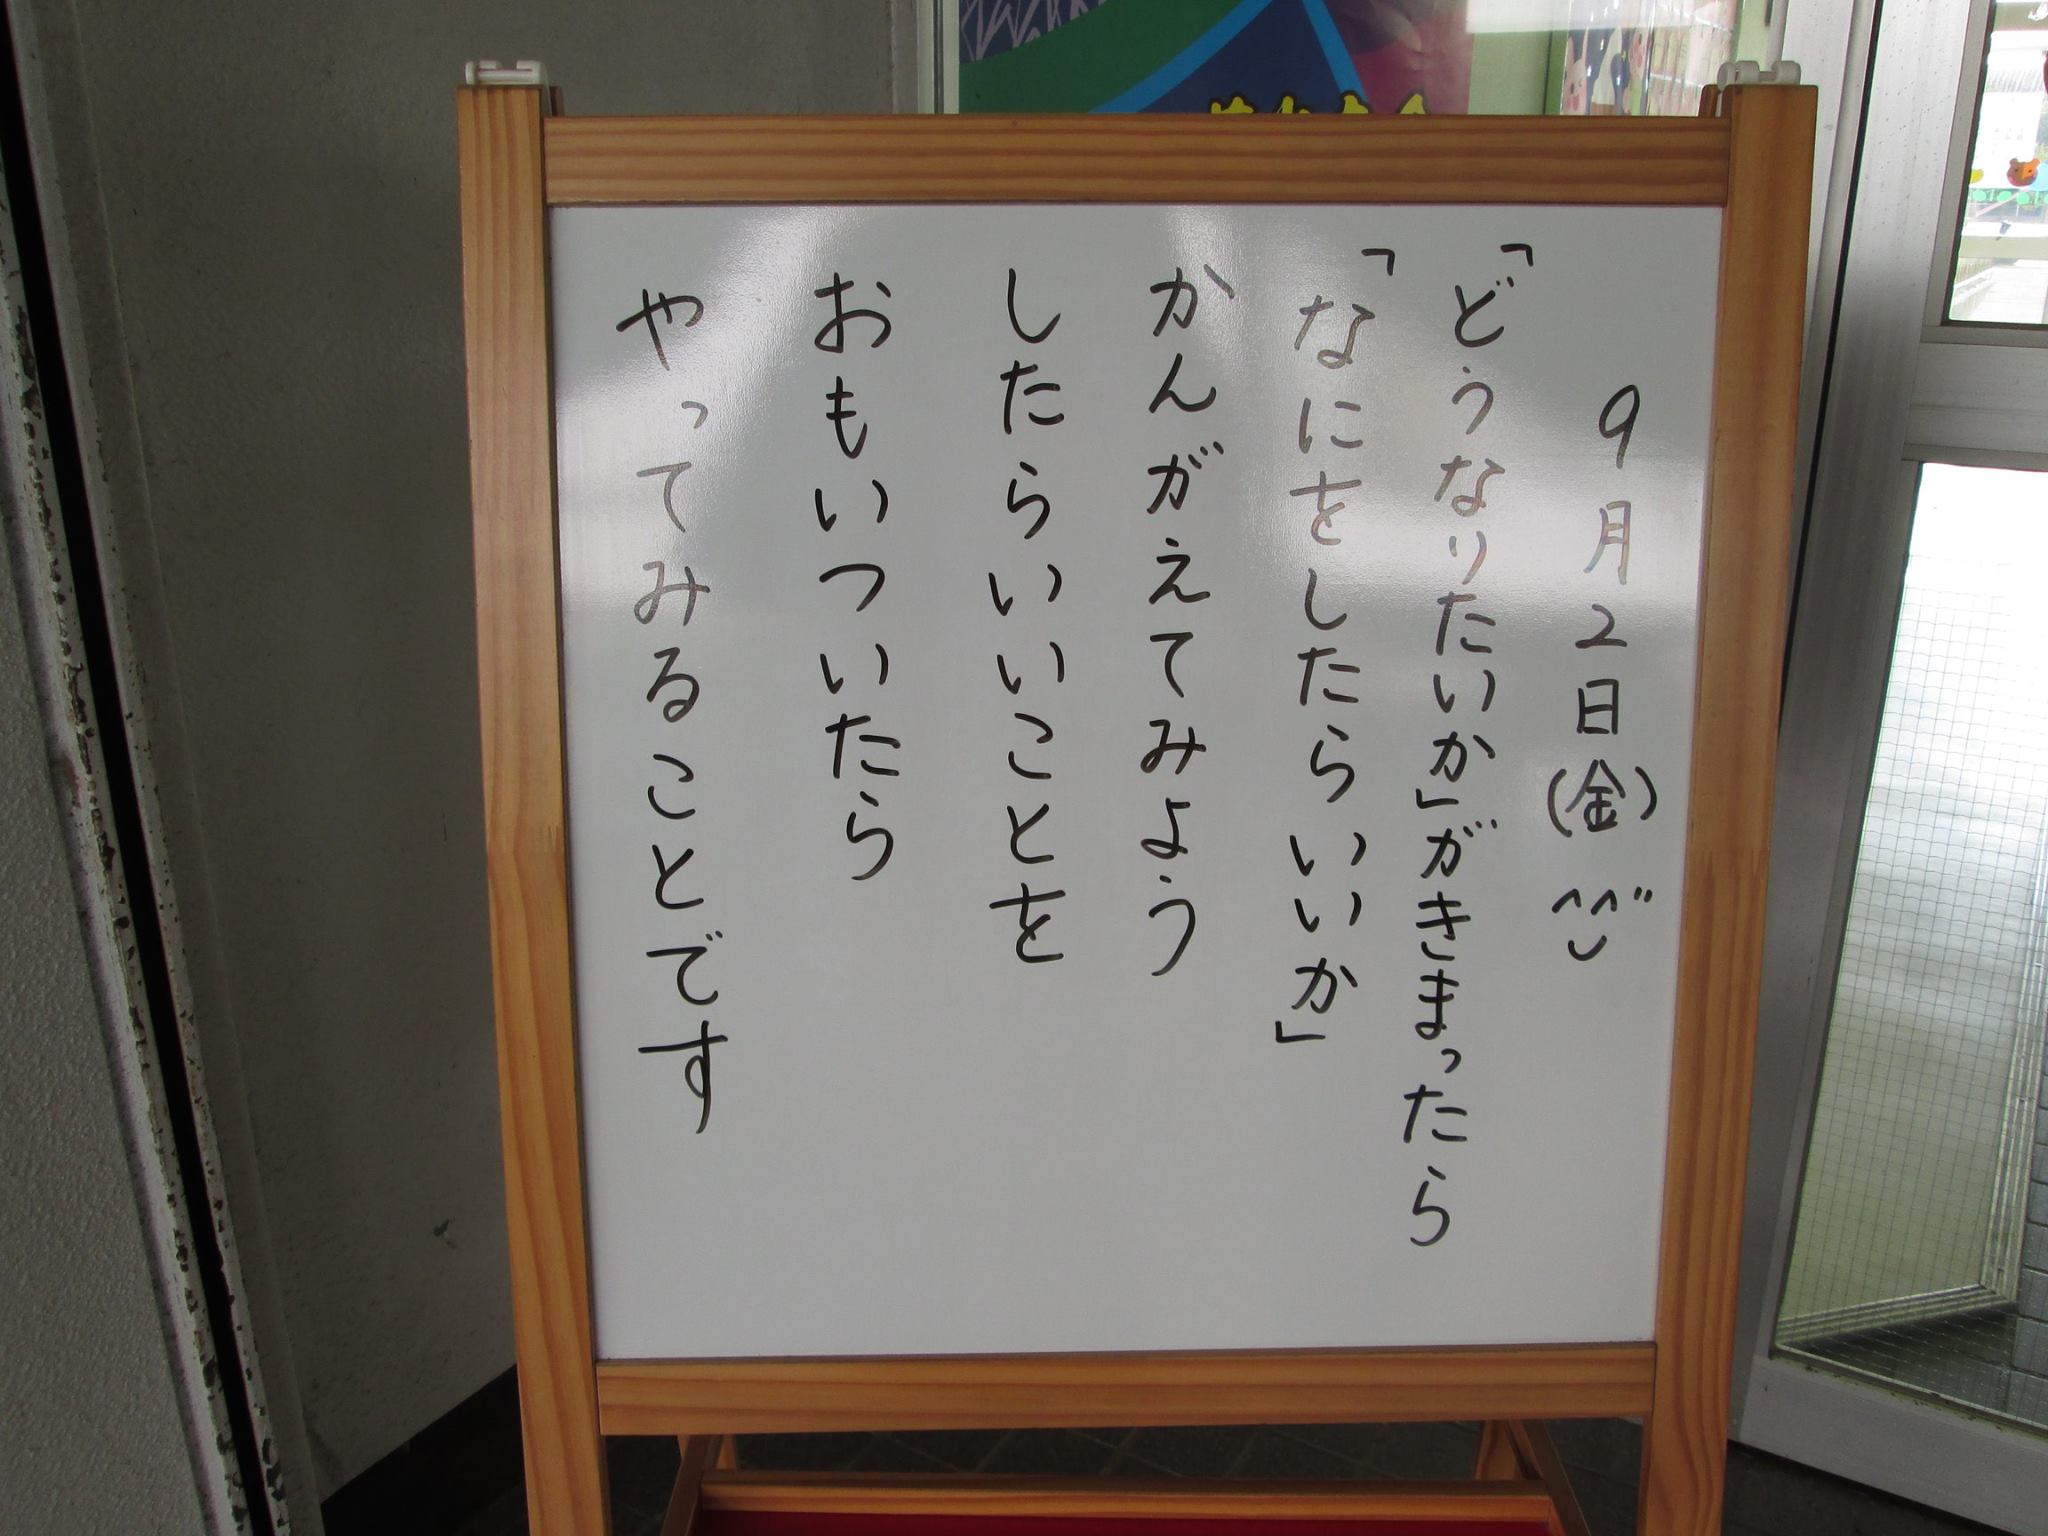 9月2日(金)^^
「どうなりたいか」がきまったら
「なにをしたらいいか」
かんがえてみよう
したらいいことを
おもいついたら
やってみることです